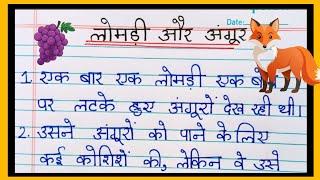 Date:
लोमड़ी और अंगूर
1. एक बार एक लोमड़ी एक
पर लटके हुए अंगूरों देख रही थी।
2. उसने अंगूरों को पाने के लिए
कई कोशिशें की, लेकिन वे उसे